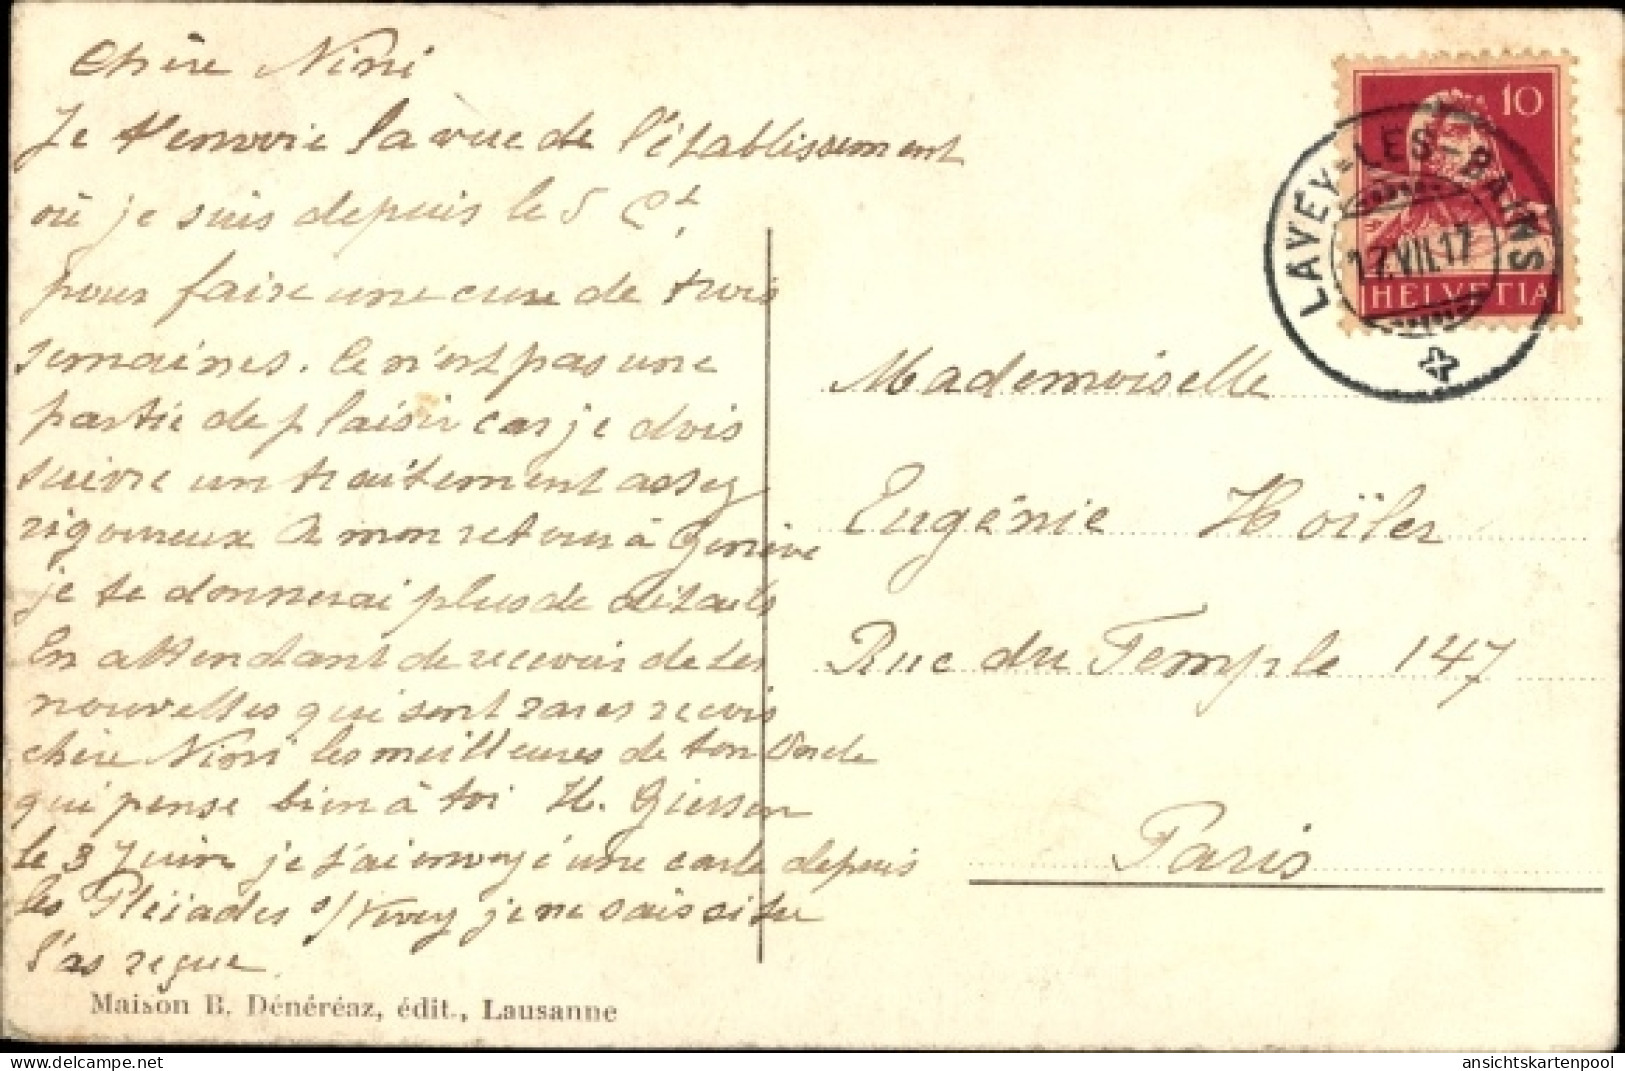 Chère Nini
Je t'envoie la vue de l'établissement
où je suis depuis le 5 Ct,
pour faire une cure de trois
semaines. Ce n'est pas une
partie de plaisir car je dois
suivre un traitement assez
rigoureux A mon retour à Genève
je te donnerai plus de détails
En attendant de recevoir de tes
nouvelles qui sont rares reçois
chère Nini les meilleures de ton Oncle
qui pense bien à toi H.
le 3 Juin je t'ai envoyé une carte depuis
les Pleïades s/Vevey je ne sais si tu
l'as reçue.
Maison B. Dénéréaz, édit., Lausanne
10
HELVETIA
LAVEY-LES-BAINS
17.VII.17
Mademoiselle
Eugénie Hoïler
Rue du Temple 147
Paris
delcampe.net
ansichtskartenpool